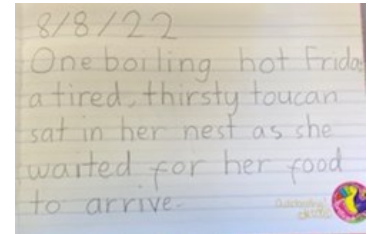 8/8/22
One boiling hot Friday
a tired, thirsty toucan
sat in her nest as she
waited for her food
to arrive.